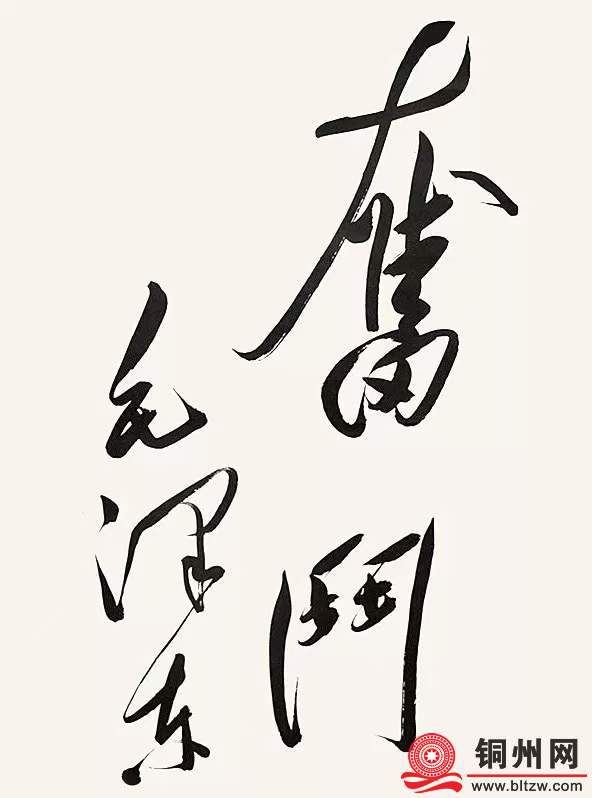 奮鬥
毛泽东
铜州网
www.bltzw.com